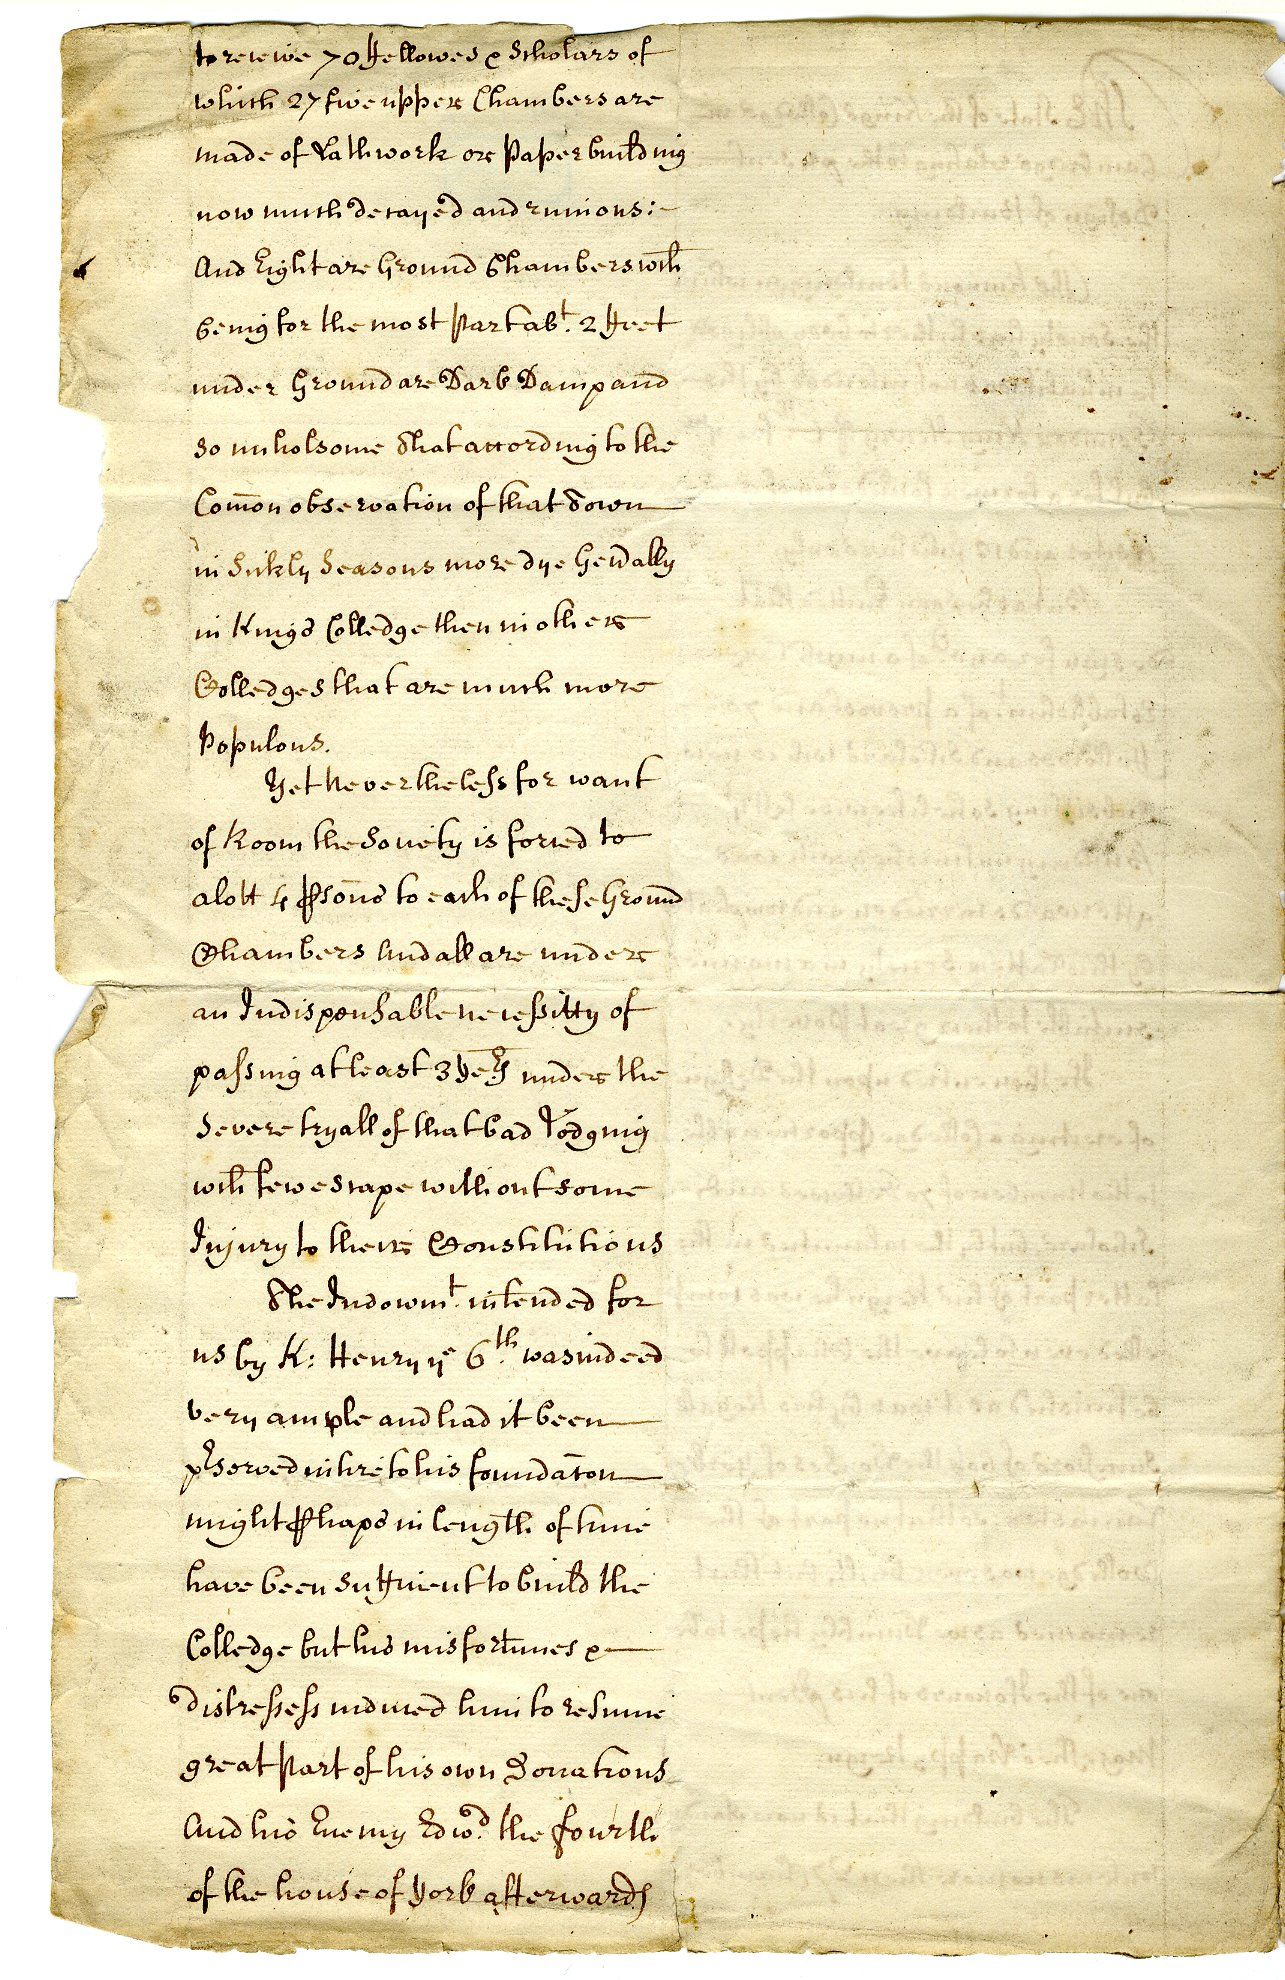 to receive 70 Fellowes & Scholars of
which 27 five upper Chambers are
made of Lathwork or Paperbuilding
now much decayed and ruinous:
And Eight are Ground Chambers wch
being for the most Part abt. 2 Feet
under Ground are Dark Damp and
so unholsome that according to the
Com̄on observation of that Town
in Sickly Seasons more dye Gen̄ally
in Kings Colledge then in other
Colledges that are much more
Populous.
Yet Nevertheless for want
of Room the Society is forced to
alott 4 ꝑsons to each of these Ground
Chambers And all are under
an Indispensable necessitty of
passing at least 3 Yeꝫ under the
Severe tryall of that bad Lodging
wch few escape without some
Injury to their Constitutions
The Indowmt. intended for
us by K: Henry ye 6th. was indeed
very ample and had it been
pꝛserved intire to his foundac̄on
might ꝑhaps in length of time
have been sufficient to build the
Colledge but his misfortunes &
distresses induced him to resume
great Part of his own Donations
And his Enemy Edwd. the fourth
of the house of York afterwards